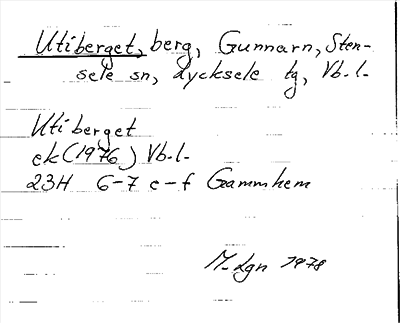 Utiberget, berg, Gunnarn, Sten-
sele sn, Lycksele tg, Vb.l.
Utiberget
ek (1976) Vb.l.
23H 6-7 e-f Gammhem
M-Lgn 1978